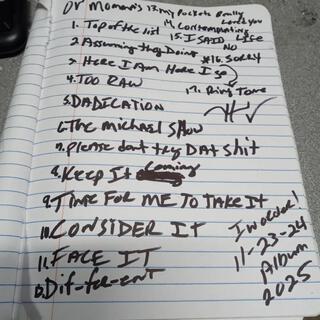 Dr Moman's 13. my pockets Really
Loved you
1. Top of the list 14. Contemplating
Life
2. Assuming they Doing 15. I SAID NO
*16. Sorry
3. Here I Am Here I go
4. TOO RAW 17. Ring Tone
5. DADICATION
6. The Michael Show
7. Please dont try DAT Shit
8. Keep It Coming
9. TIME FOR ME TO TAKE IT
10. CONSIDER IT
11. FACE IT
12. Dif-fer-ent
In order!
11-23-24
Album
2025